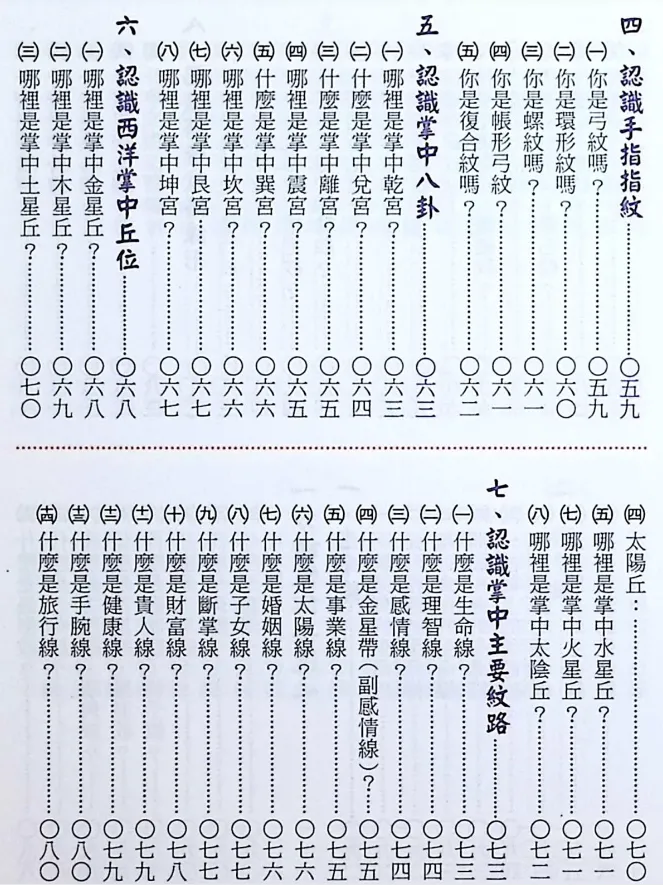 四、認識手指指紋……〇五九
㈠你是弓紋嗎？……〇五九
㈡你是環形紋嗎？……〇六〇
㈢你是螺紋嗎？……〇六一
㈣你是帳形弓紋？……〇六一
㈤你是復合紋嗎？……〇六二
五、認識掌中八卦……〇六三
㈠哪裡是掌中乾宮？……〇六三
㈡什麼是掌中兌宮？……〇六四
㈢什麼是掌中離宮？……〇六五
㈣哪裡是掌中震宮？……〇六五
㈤什麼是掌中巽宮？……〇六六
㈥哪裡是掌中坎宮？……〇六六
㈦哪裡是掌中艮宮……〇六七
㈧哪裡是掌中坤宮？……〇六七
六、認識西洋掌中丘位……〇六八
㈠哪裡是掌中金星丘？……〇六八
㈡哪裡是掌中木星丘？……〇六九
㈢哪裡是掌中土星丘？……〇七〇
㈣太陽丘：……〇七〇
㈤哪裡是掌中水星丘？……〇七一
㈦哪裡是掌中火星丘？……〇七一
㈧哪裡是掌中太陰丘？……〇七二
七、認識掌中主要紋路……〇七三
㈠什麼是生命線？……〇七三
㈡什麼是理智線？……〇七四
㈢什麼是感情線？……〇七四
㈣什麼是金星帶（副感情線）？……〇七五
㈤什麼是事業線？……〇七五
㈥什麼是太陽線？……〇七六
㈦什麼是婚姻線？……〇七六
㈧什麼是子女線？……〇七七
㈨什麼是斷掌線？……〇七七
㈩什麼是財富線？……〇七八
(十一)什麼是貴人線？……〇七九
(十二)什麼是健康線？……〇七九
(十三)什麼是手腕線？……〇八〇
(十四)什麼是旅行線？……〇八〇